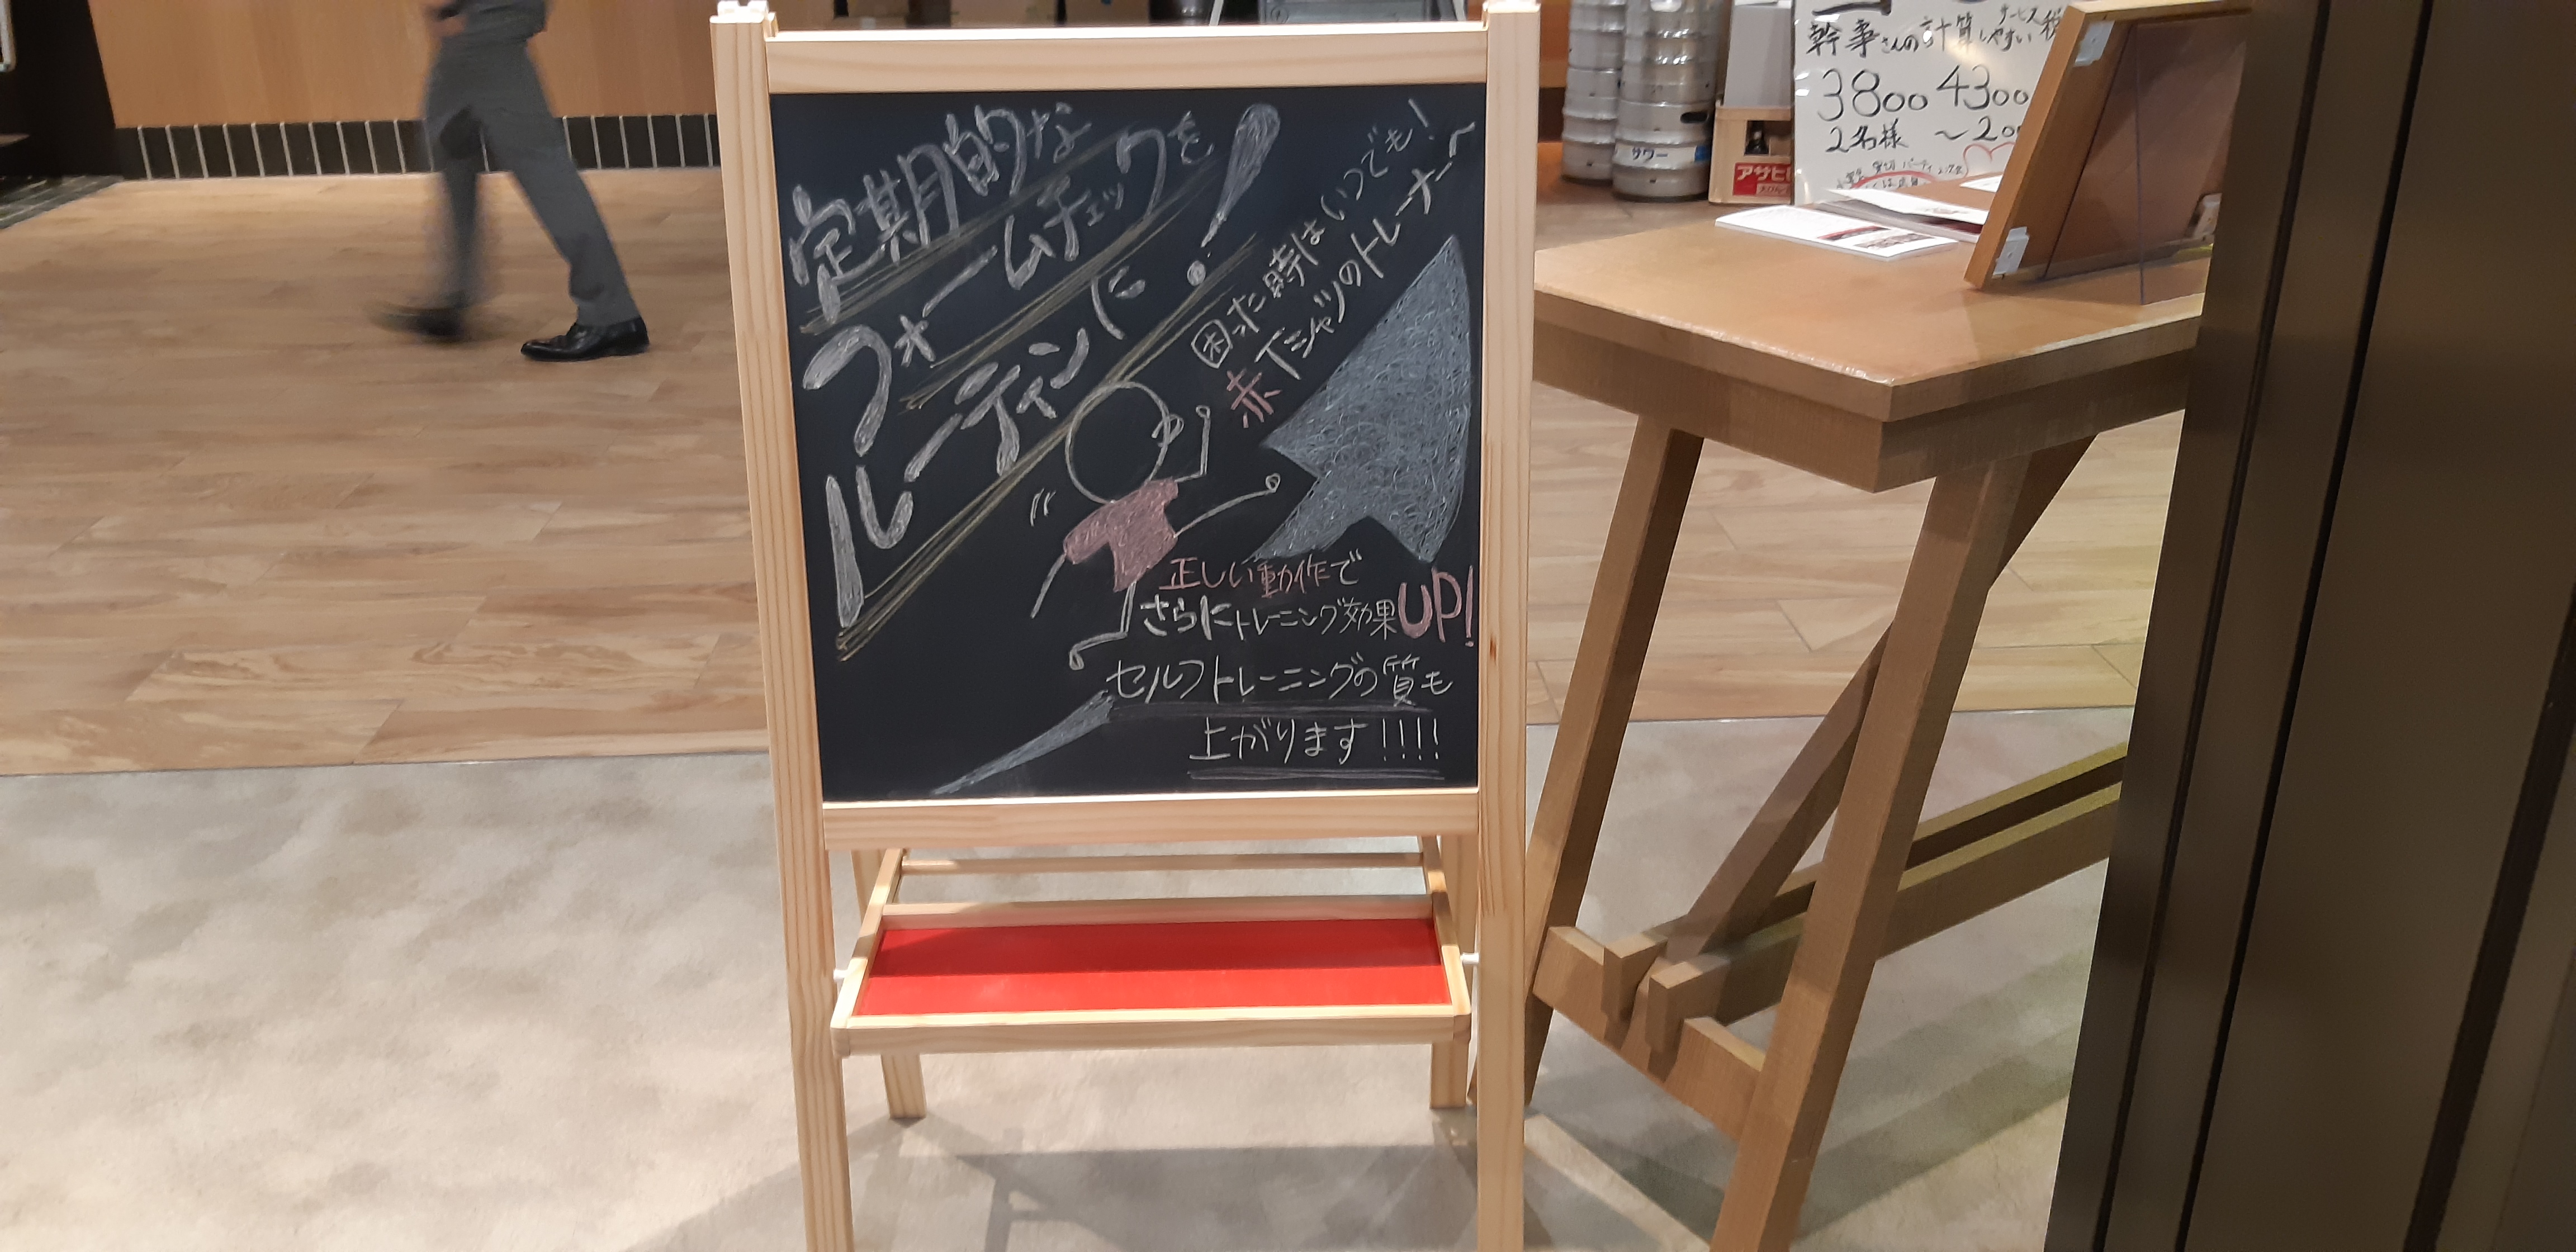 定期的な
フォームチェックを
ルーティンに!
困った時はいつでも!
赤Tシャツのトレーナーへ
正しい動作で
さらにトレーニング効果UP!
セルフトレーニングの質も
上がります!!!!
サワー
アサヒ
幹事さんの計算しやすい
サービス
3800 4300
2名様 〜